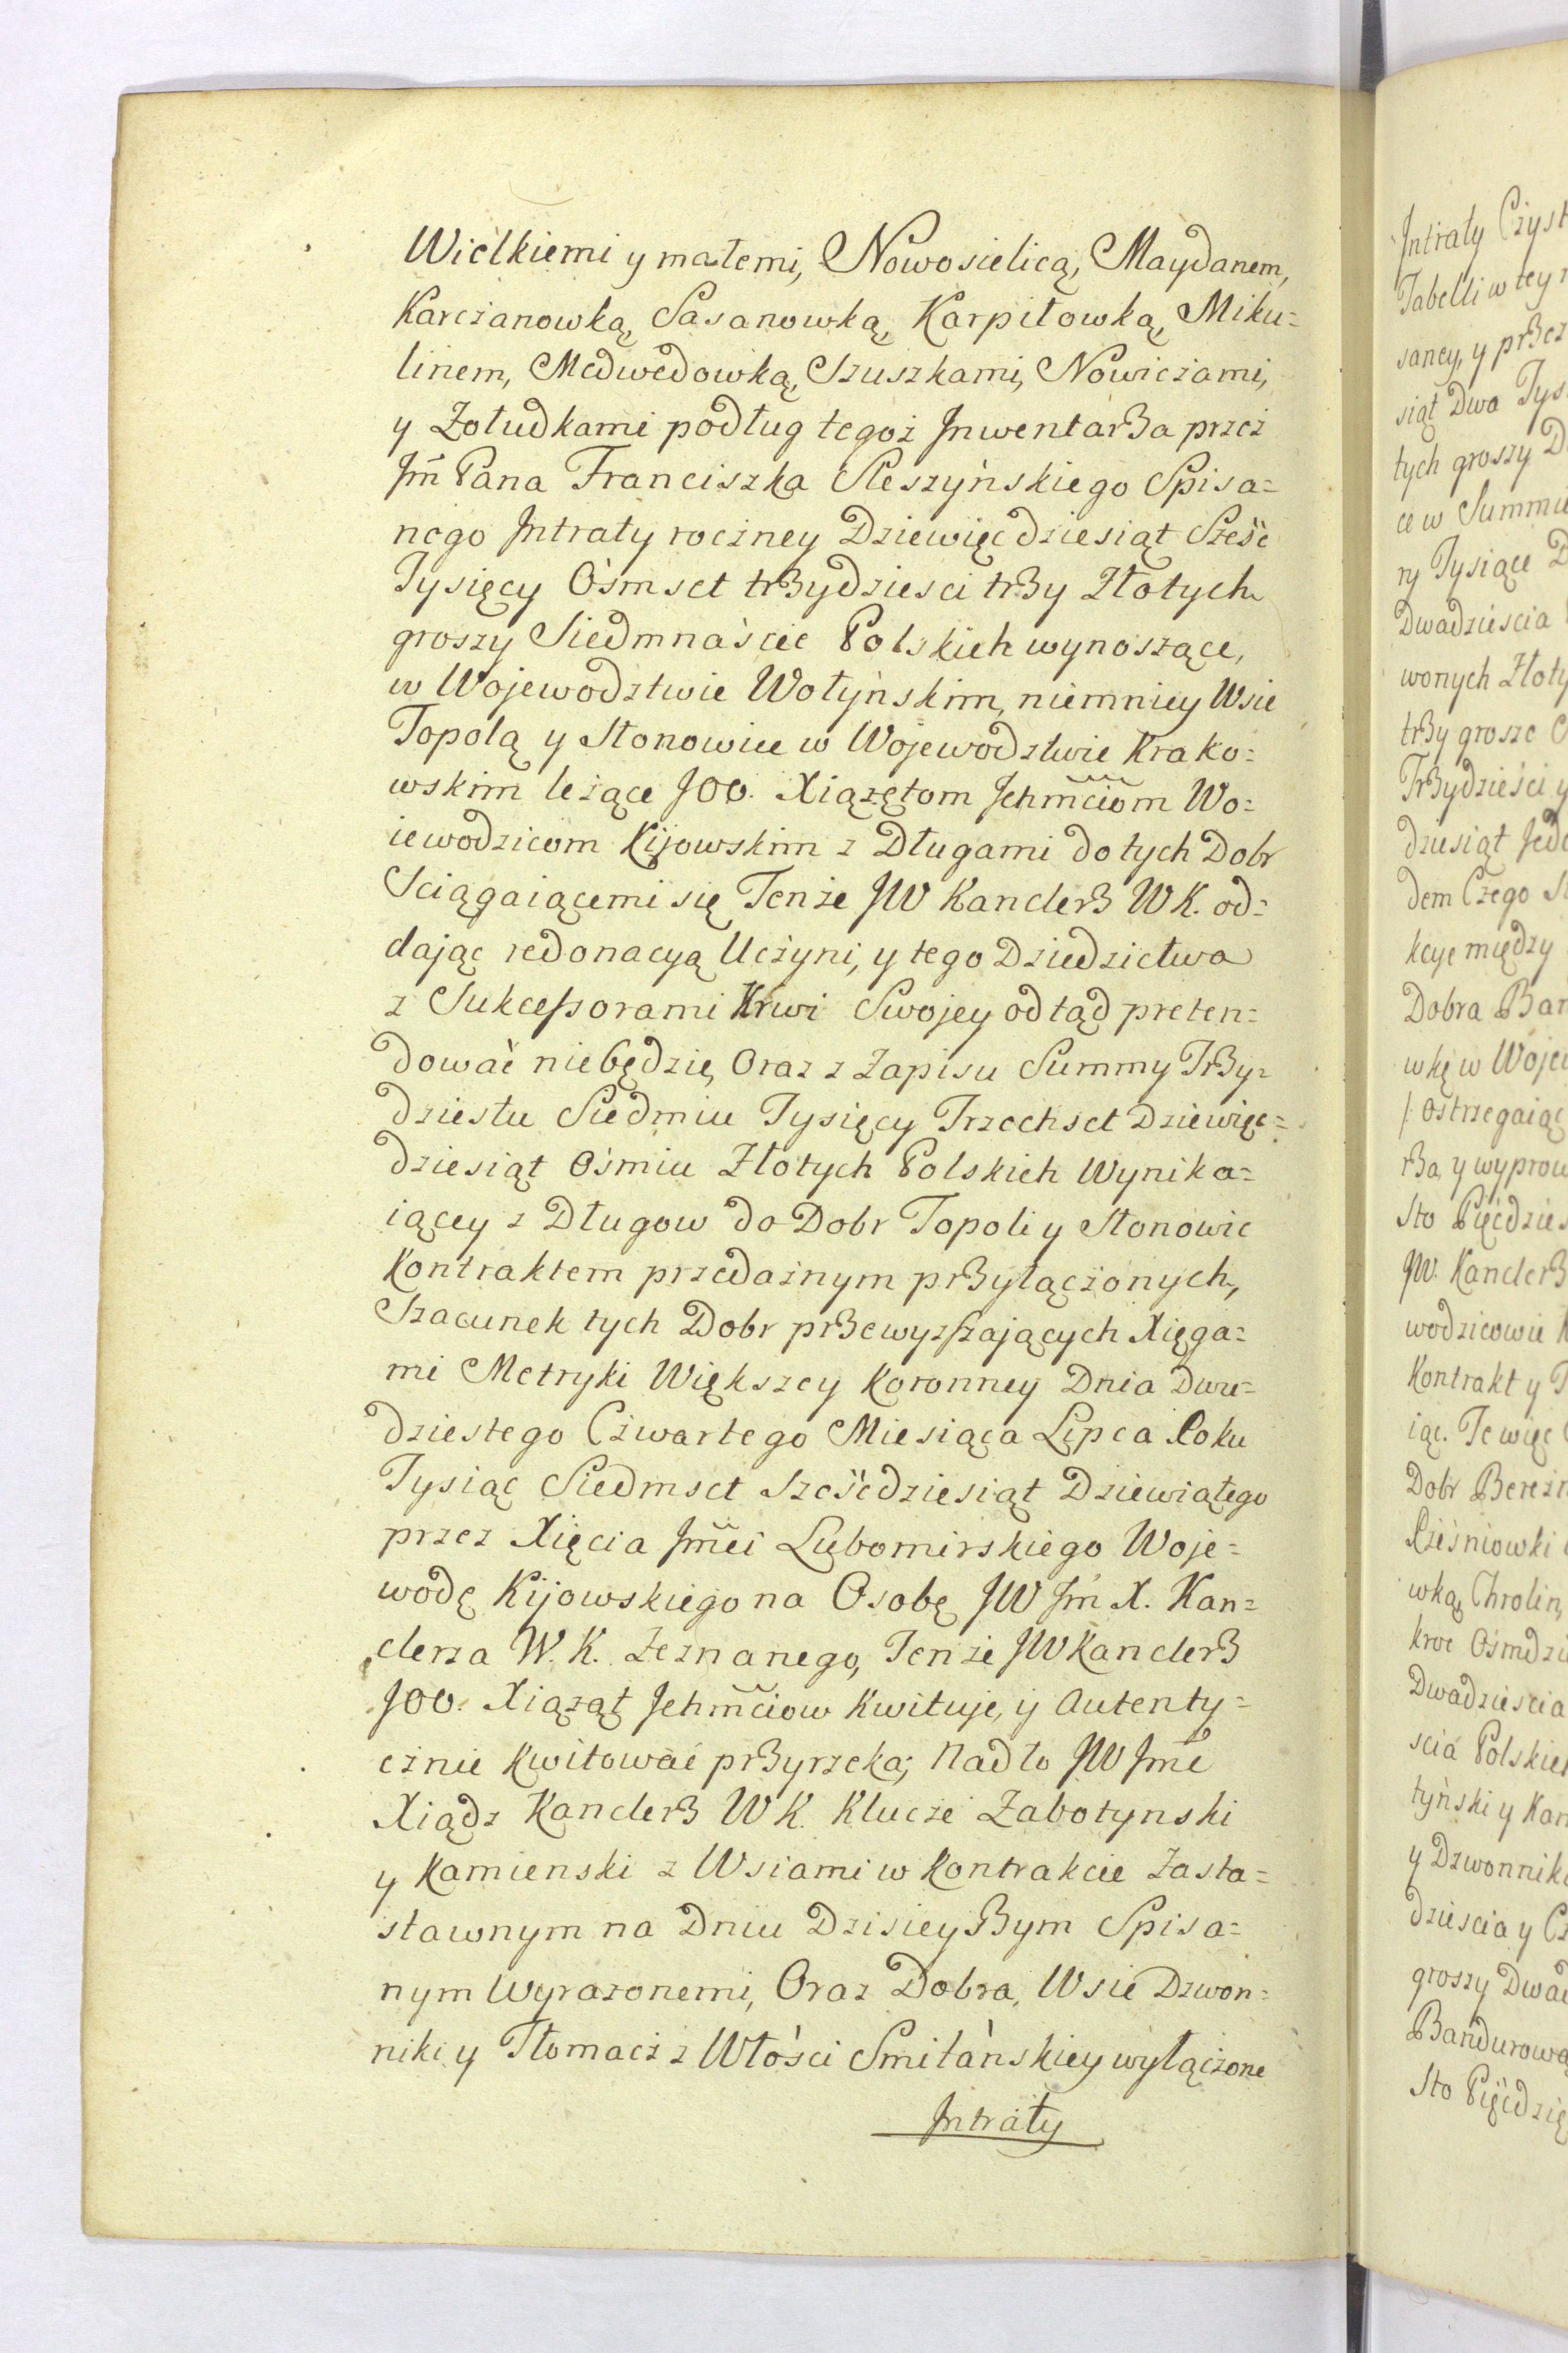 Wielkiemi y małemi, Nowosielicą, Maydanem,
Karczanowką, Sasanowką, Karpiłowką, Miku=
linem, Medwedowką, Szuszkami, Nowiczami,
y Zołudkami podług tegoż Jnwentarza przez
Jm̃ Pana Franciszka Sleszyńskiego Spisa=
nego Jntraty roczney Dziewięcdziesiąt Sześć
Tysięcy Ośmset trzydziesci trzy Złotych
groszy Siedmnaście Polskich wynoszące,
w Wojewodztwie Wołyńskim, niemniey Wsie
Topolą y Stonowice w Wojewodztwie Krako=
wskim leżące JOO. Xiążętom Jchm̃ciom Wo=
iewodzicom Kijowskim z Długami do tych Dobr
Sciągaiącemi się Tenże JW Kanclerz WK. od=
dając redonacyą Uczyni, y tego Dziedzictwa
z Sukcessorami Krwi Swojey odtąd preten=
dować niebędzie, Oraz z Zapisu Summy Trzy=
dziestu Siedmiu Tysięcy Trzechset Dziewięc=
dziesiąt Ośmiu Złotych Polskich Wynika=
iącey z Długow do Dobr Topoli y Stonowic
Kontraktem przedażnym przyłączonych,
Szacunek tych Dobr przewyzszających Xięga=
mi Metryki Większey Koronney Dnia Dwu=
dziestego Czwartego Miesiąca Lipca Roku
Tysiąc Siedmset Sześćdziesiąt Dziewiątego
przez Xięcia Jm̃ci Lubomirskiego Woje=
wodę Kijowskiego na Osobę JW Jm̃ X. Kan=
clerza W. K. Zeznanego, Tenże JW Kanclerz
JOO. Xiążąt Jchm̃ciow Kwituje, ÿ Autenty=
cznie Kwitować przyrzeka; Nadto JW Jm̃c
Xiądz Kanclerz WK. Klucze Zabotynski
y Kamienski z Wsiami w Kontrakcie Zasta=
stawnym na Dniu Dzisieyszym Spisa=
nym Wyrazonemi, Oraz Dobra, Wsie Dzwon=
niki y Tłomacz z Włości Smilańskiey wyłączone
Jntraty
Jntraty
Tabelli w tey
saney, y przez
siąt Dwa
tych groszy
ce w Summie
ry Tysiące
Dwadziescia
wonych Złoty
trzy grosze
Trzydzieści y
dziesiąt
dem Czego
kcye między
Dobra
wkę w
/: Ostrzegaiąc
rza, y
Sto
JW. Kanclerz
wodzicowie
Kontrakt y
iąc. Te więc
Dobr
wką, Chrolin,
kroc
Dwadziescia
scia Polskich
y
y Dzwonniki
dziescia y
groszy
Sto